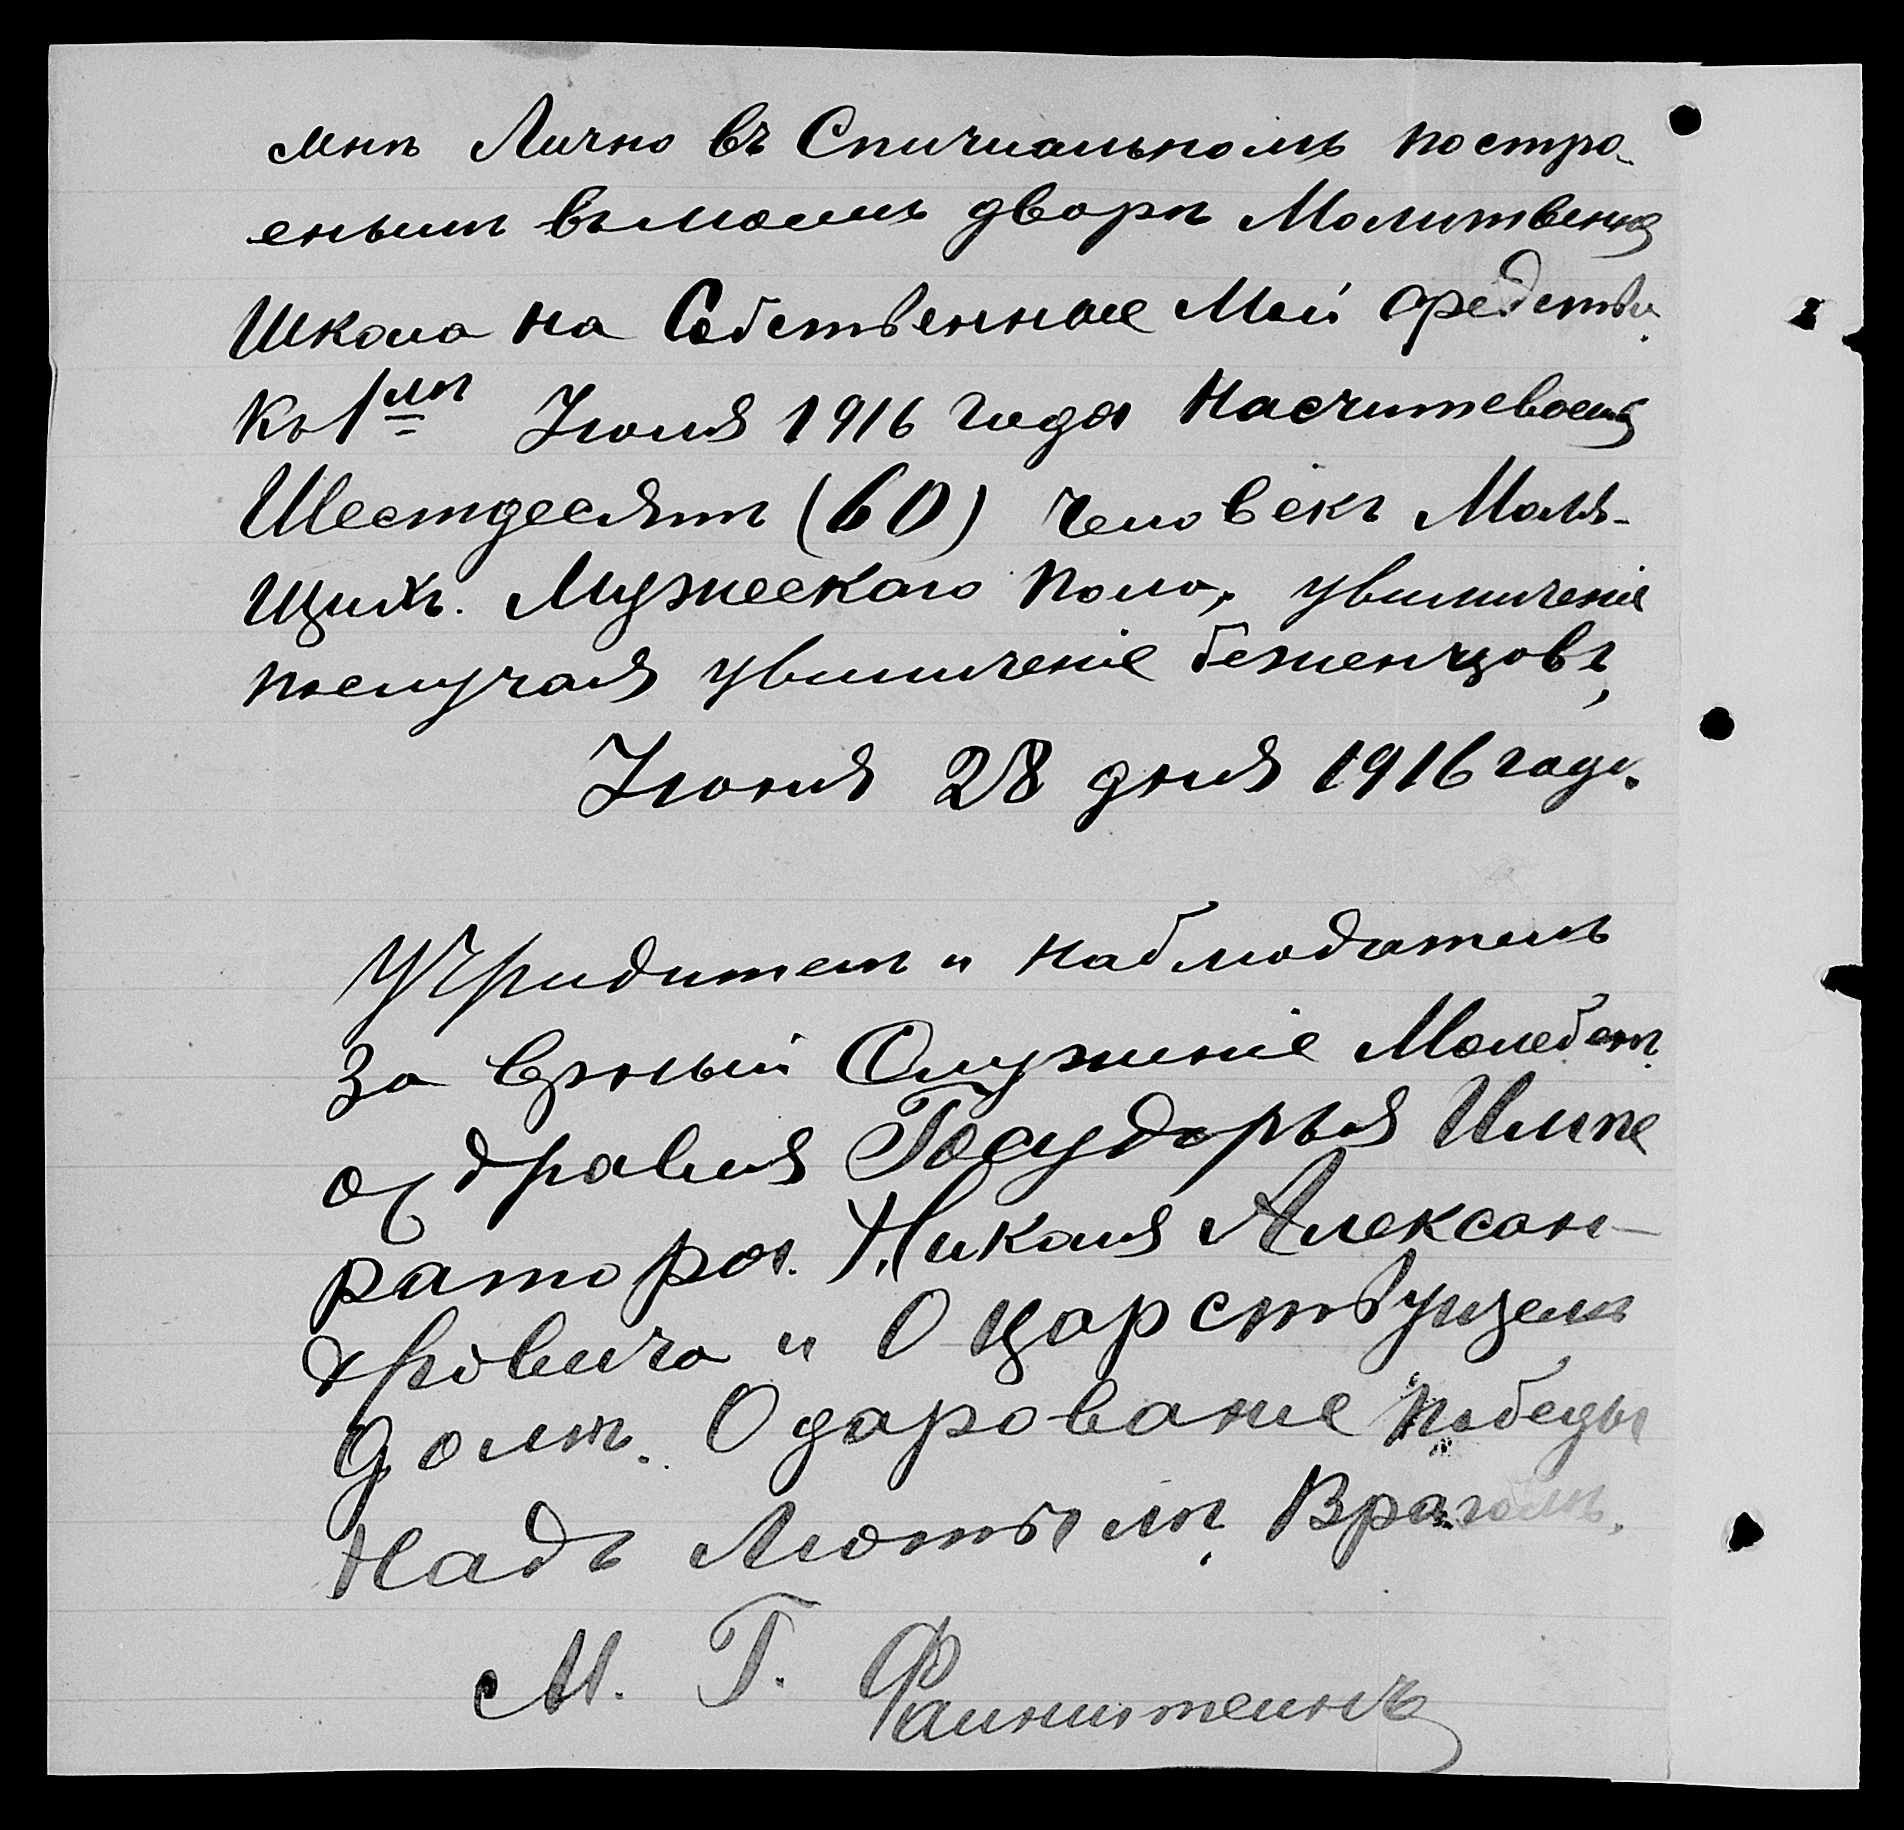 мнѣ Лично въ Спичиальномъ постро-
еным вьмоемъ дворѣ Молитвеная
Школа на Собственные Мои средства.
Къ 1му Июля 1916 года Насчитеваеця
Шестдесятъ (60) Человекъ Моля-
Щихъ. Мужескаго Пола, увиличеніе
послучая увиличеніе беженцовъ,
Июня 28 дня 1916 года.
Учридитель и наблюдатель
За верный Служиніе Молебенъ
оздравия Государья Импе
ратора. Никалая Алексан-
дровича и О царствующемъ
домѣ. О дарование Победы
Надъ Лютымъ Врагомъ.
М. Г. Фаинштеинъ